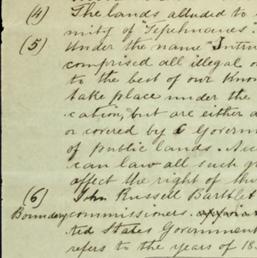 (4) The lands alluded to
mity of Tepehuanes.
(5) Under the name Intru
comprised all illegal o
to the best of our Know
take place under the
cation, but are either a
or covered by Governm
of public lands. Au
can law all such g
affect the right of the
(6) John Russell Bartlet
Boundary commissioners.
ted States Government
refers to the years of 18